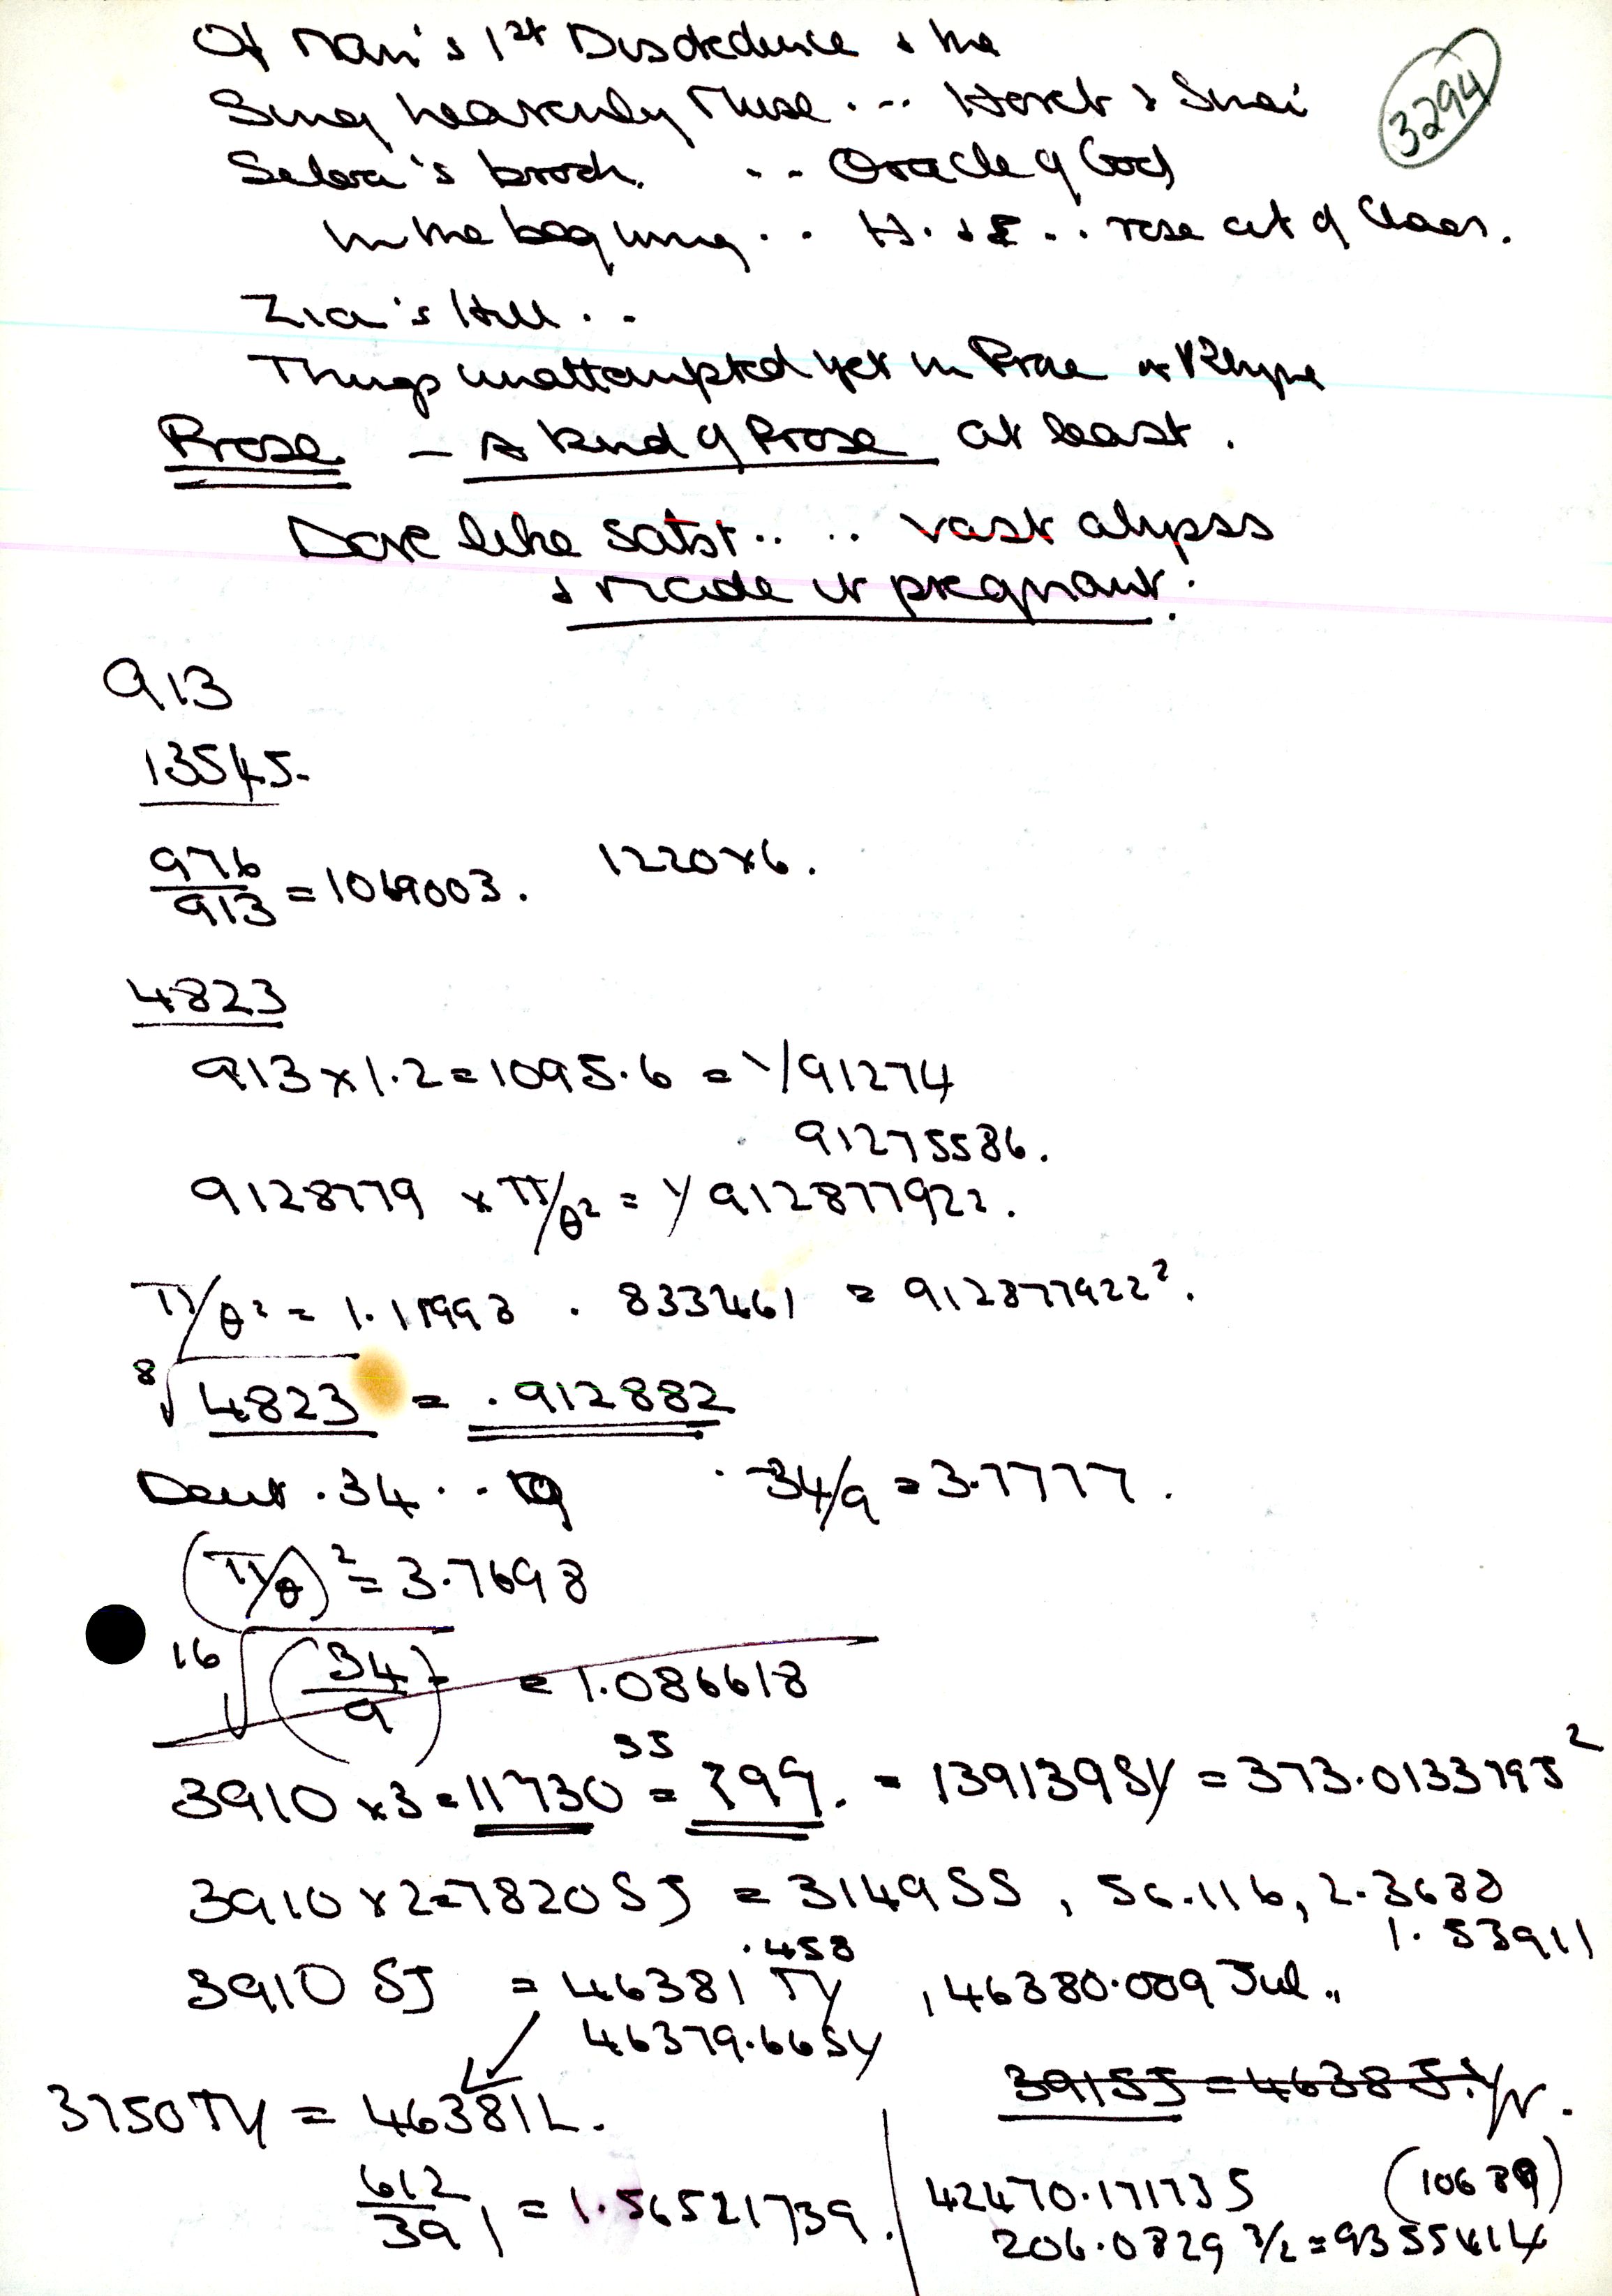 Of Man's 1st Disobedience & the
Sing heavenly Muse ... Horeb & Sinai
3294
.. Oracle of God
In the beginning .. H. & E .. rose out of Chaos.
's Hill ..
Things unattempted yet in Prose or Rhyme
Prose - A kind of Prose at least.
Dove like satst .. .. vast abyss
& made it pregnant.
913
13545.
976/913 = 1069003. 1220x6.
4823
913 x 1.2 = 1095.6 = 1/91274
91275586.
9128779 x π/θ² = 1/912877922.
π/θ² = 1.19998 . 833461 = 912877922².
⁸√4823 = .912882
Deut. 34 .. 34/9 = 3.7777.
(π/θ)² = 3.7698
¹⁶√(34/9) = 1.086618
3910 x 3 = 11730 SJ = 799. = 139139 SY = 373.0133795²
3910 x 2 = 7820 SJ = 3149 SS, 56.116, 2.3688
1.53911
3910 SJ = 46381.458 TY, 46380.009 Jul.,
46379.66 SY
3750 TY = 46381 L. 391 SJ = 4638 J.Yr.
612/391 = 1.56521739. 42470.17173S (10689)
206.0829 3/2 =